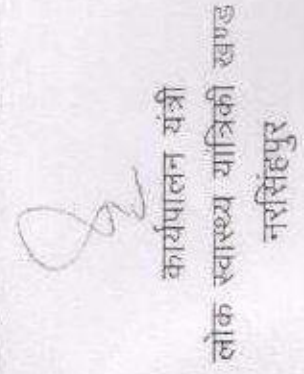 कार्यपालन यंत्री
लोक स्वास्थ्य यांत्रिकी खण्ड
नरसिंहपुर